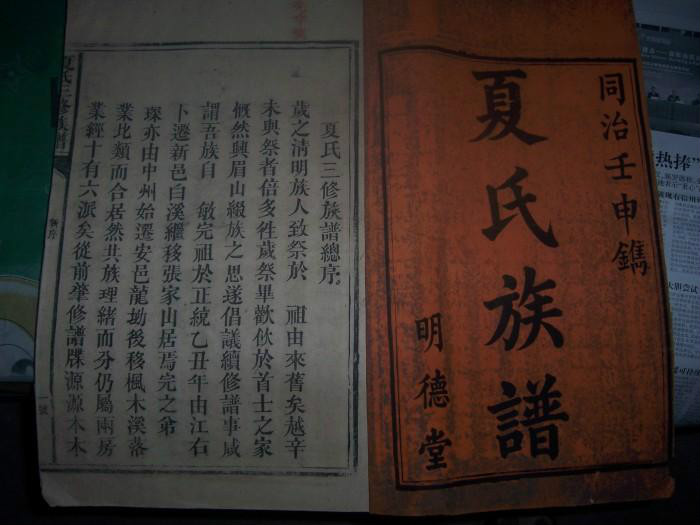 同治壬申鐫
夏氏族譜
明德堂
夏氏三修族譜總序
歲之清明族人致祭於 祖由來舊矣越辛
未與祭者倍多徃歲祭畢歡飲於首士之家
慨然興眉山綴族之思遂倡議續修譜事咸
謂吾族自 敏完祖於正統乙丑年由江右
卜遷新邑白溪繼移張家山居焉完之弟
琛亦由中州始遷安邑龍坳後移楓木溪落
業比類而合居然共族理緒而分仍屬兩房
業經十有六派矣從前肇修譜牒源源本本
夏氏三修族譜
一號
熱捧"